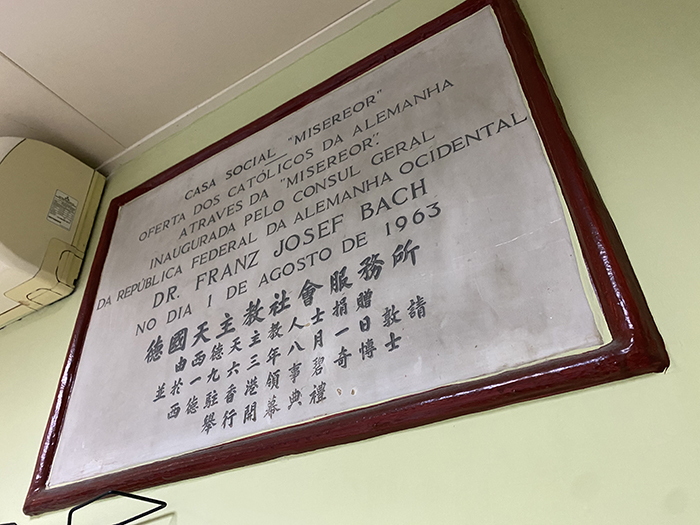 CASA SOCIAL "MISEREOR"
OFERTA DOS CATÓLICOS DA ALEMANHA
ATRAVES DA "MISEREOR".
INAUGURADA PELO CONSUL GERAL
DA REPÚBLICA FEDERAL DA ALEMANHA OCIDENTAL
DR. FRANZ JOSEF BACH
NO DIA 1 DE AGOSTO DE 1963
德國天主教社會服務所
由西德天主教人士捐贈
並於一九六三年八月一日敦請
西德駐香港領事碧奇博士
舉行開幕典禮